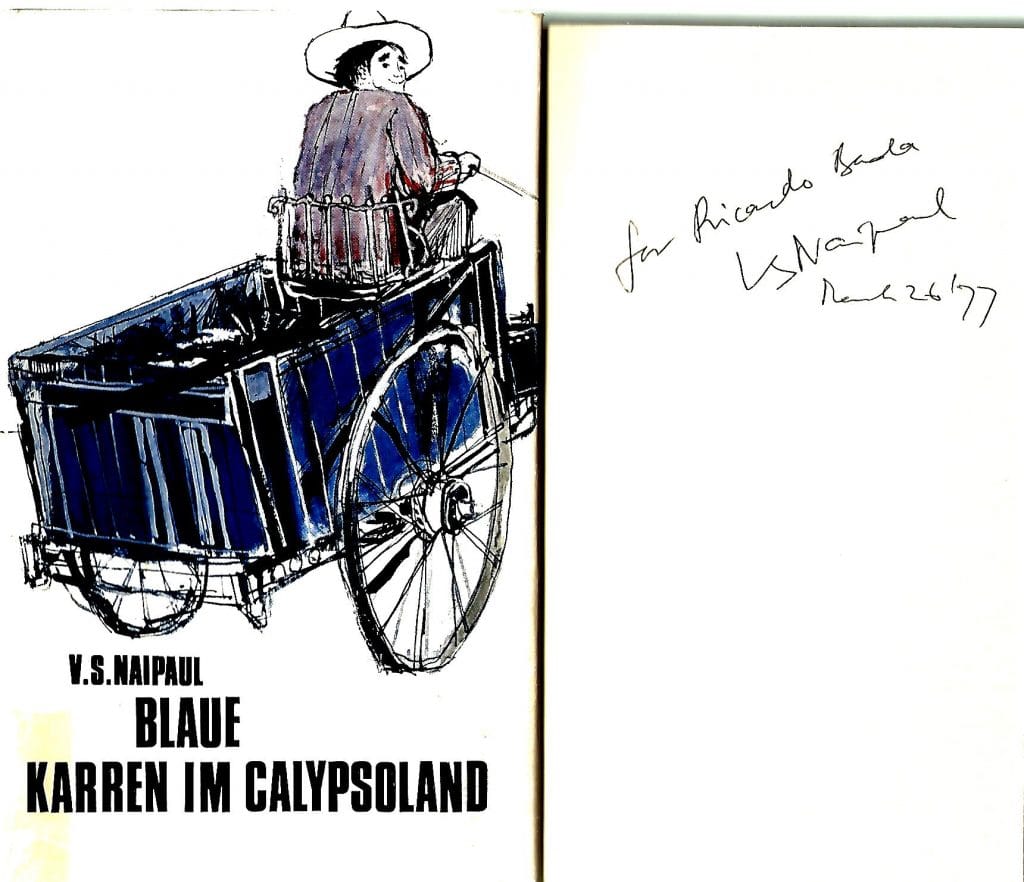 V.S.NAIPAUL
BLAUE
KARREN IM CALYPSOLAND
for Ricardo
VS Naipaul
March 26 '77